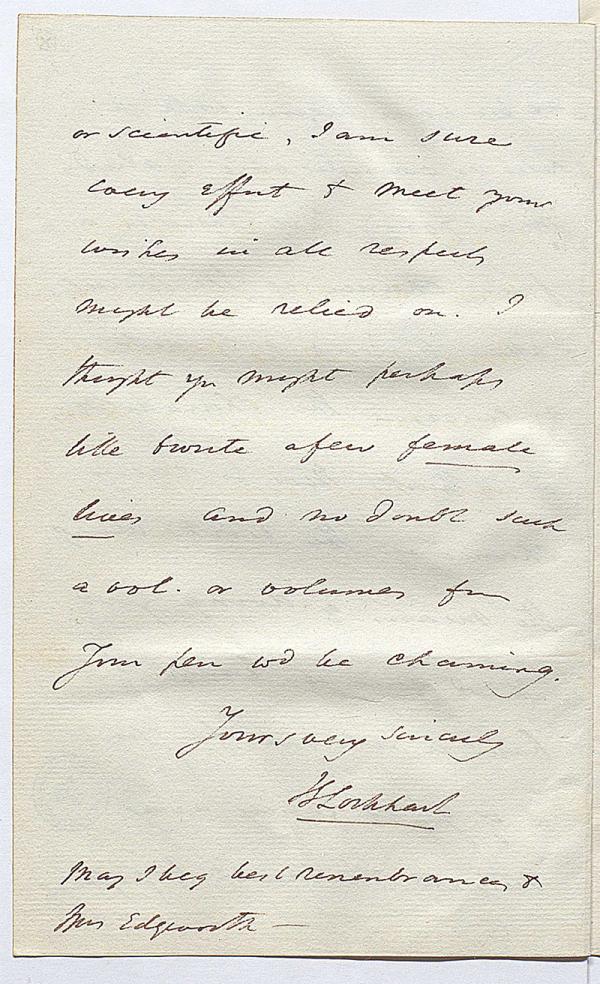 or scientific, I am sure
every effort to meet your
wishes in all respects
might be relied on. I
thought you might perhaps
like to write a few female
lives and no doubt such
a vol. or volumes from
Your pen wd be charming.
Yours very sincerely
JG Lockhart
May I beg best remembrances to
Mrs Edgeworth —